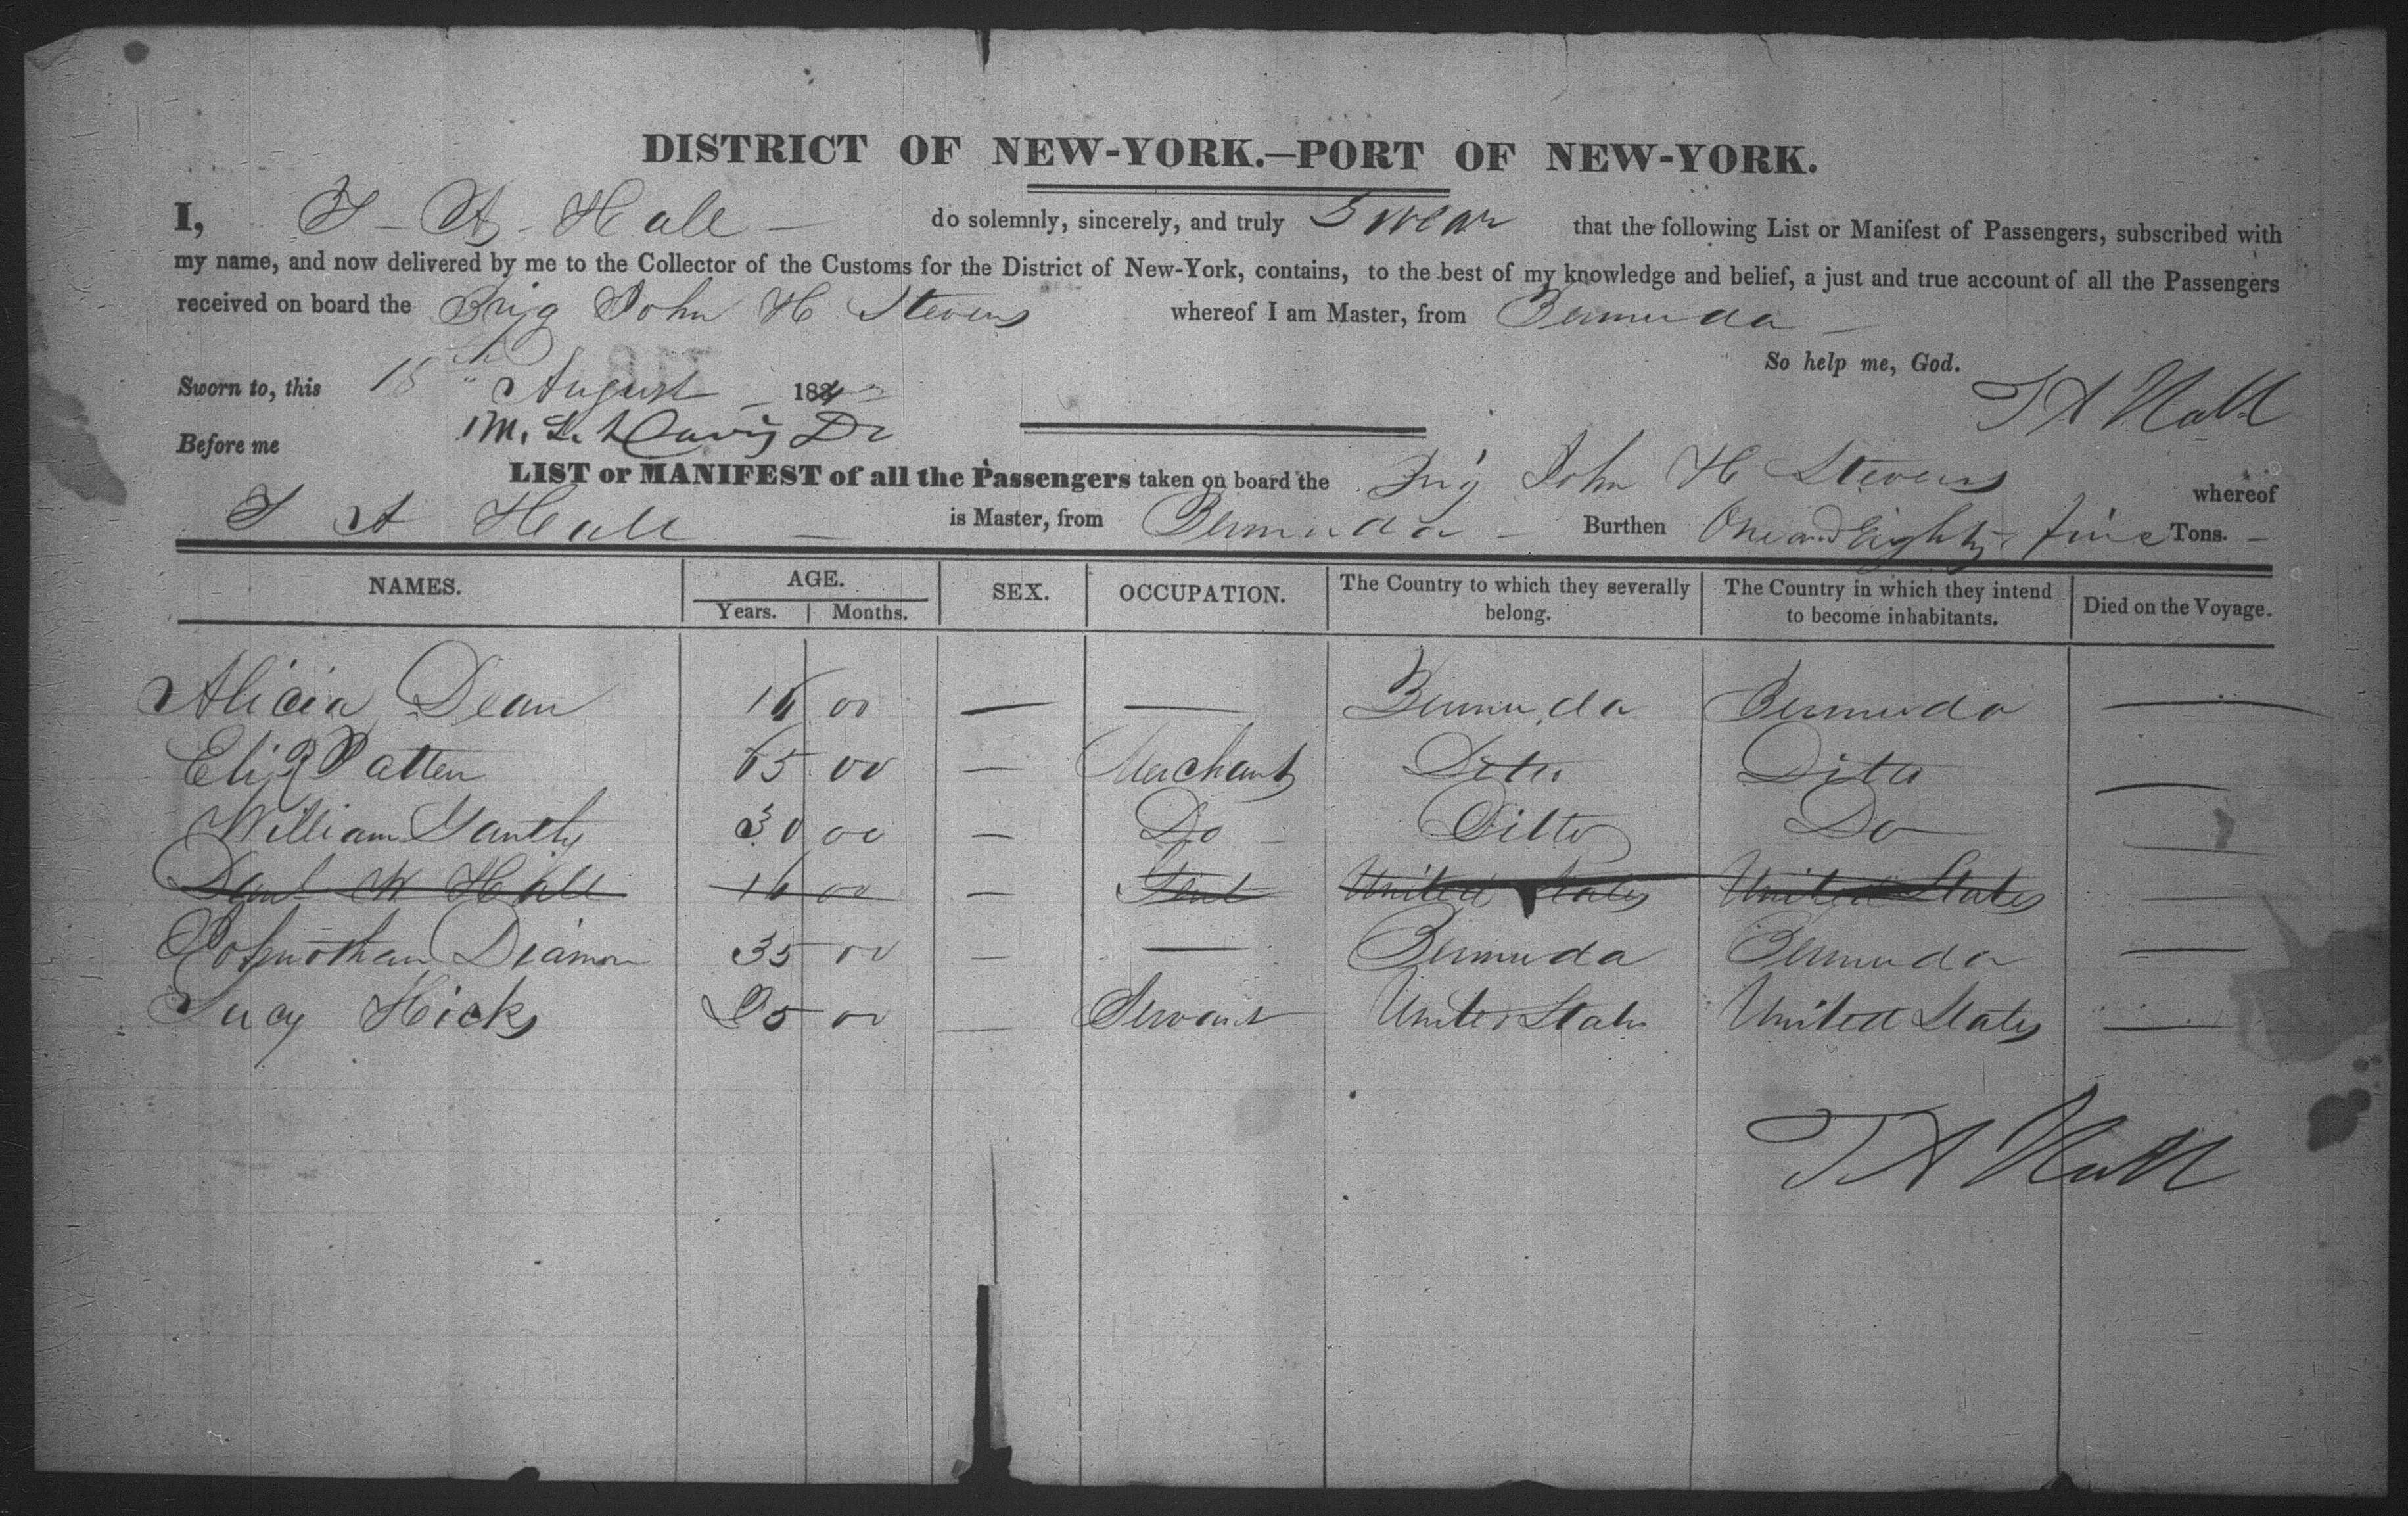 DISTRICT OF NEW-YORK.—PORT OF NEW-YORK.
I, T - A - Hall - do solemnly, sincerely, and truly Swear that the following List or Manifest of Passengers, subscribed with
my name, and now delivered by me to the Collector of the Customs for the District of New-York, contains, to the best of my knowledge and belief, a just and true account of all the Passengers
received on board the Brig John H Stevens whereof I am Master, from Bermuda -
So help me, God.
Sworn to, this 18th August 184
T A Hall
Before me M. L. Davis
LIST or MANIFEST of all the Passengers taken on board the Brig John H Stevens whereof
T A Hall - is Master, from Bermuda - Burthen One and Eighty five Tons. -
NAMES. AGE. SEX. OCCUPATION. The Country to which they severally belong. The Country in which they intend to become inhabitants. Died on the Voyage.
Years. Months.
Alicia Dean 16 00 — — Bermuda Bermuda —
Eliz Patten 65 00 — Merchant Ditto Ditto —
William 30 00 — Do Ditto Do —
W Hall 16 00 — United States United States —
35 00 — — Bermuda Bermuda —
Lucy Hicks 25 00 — Servant United States United States —
T A Hall